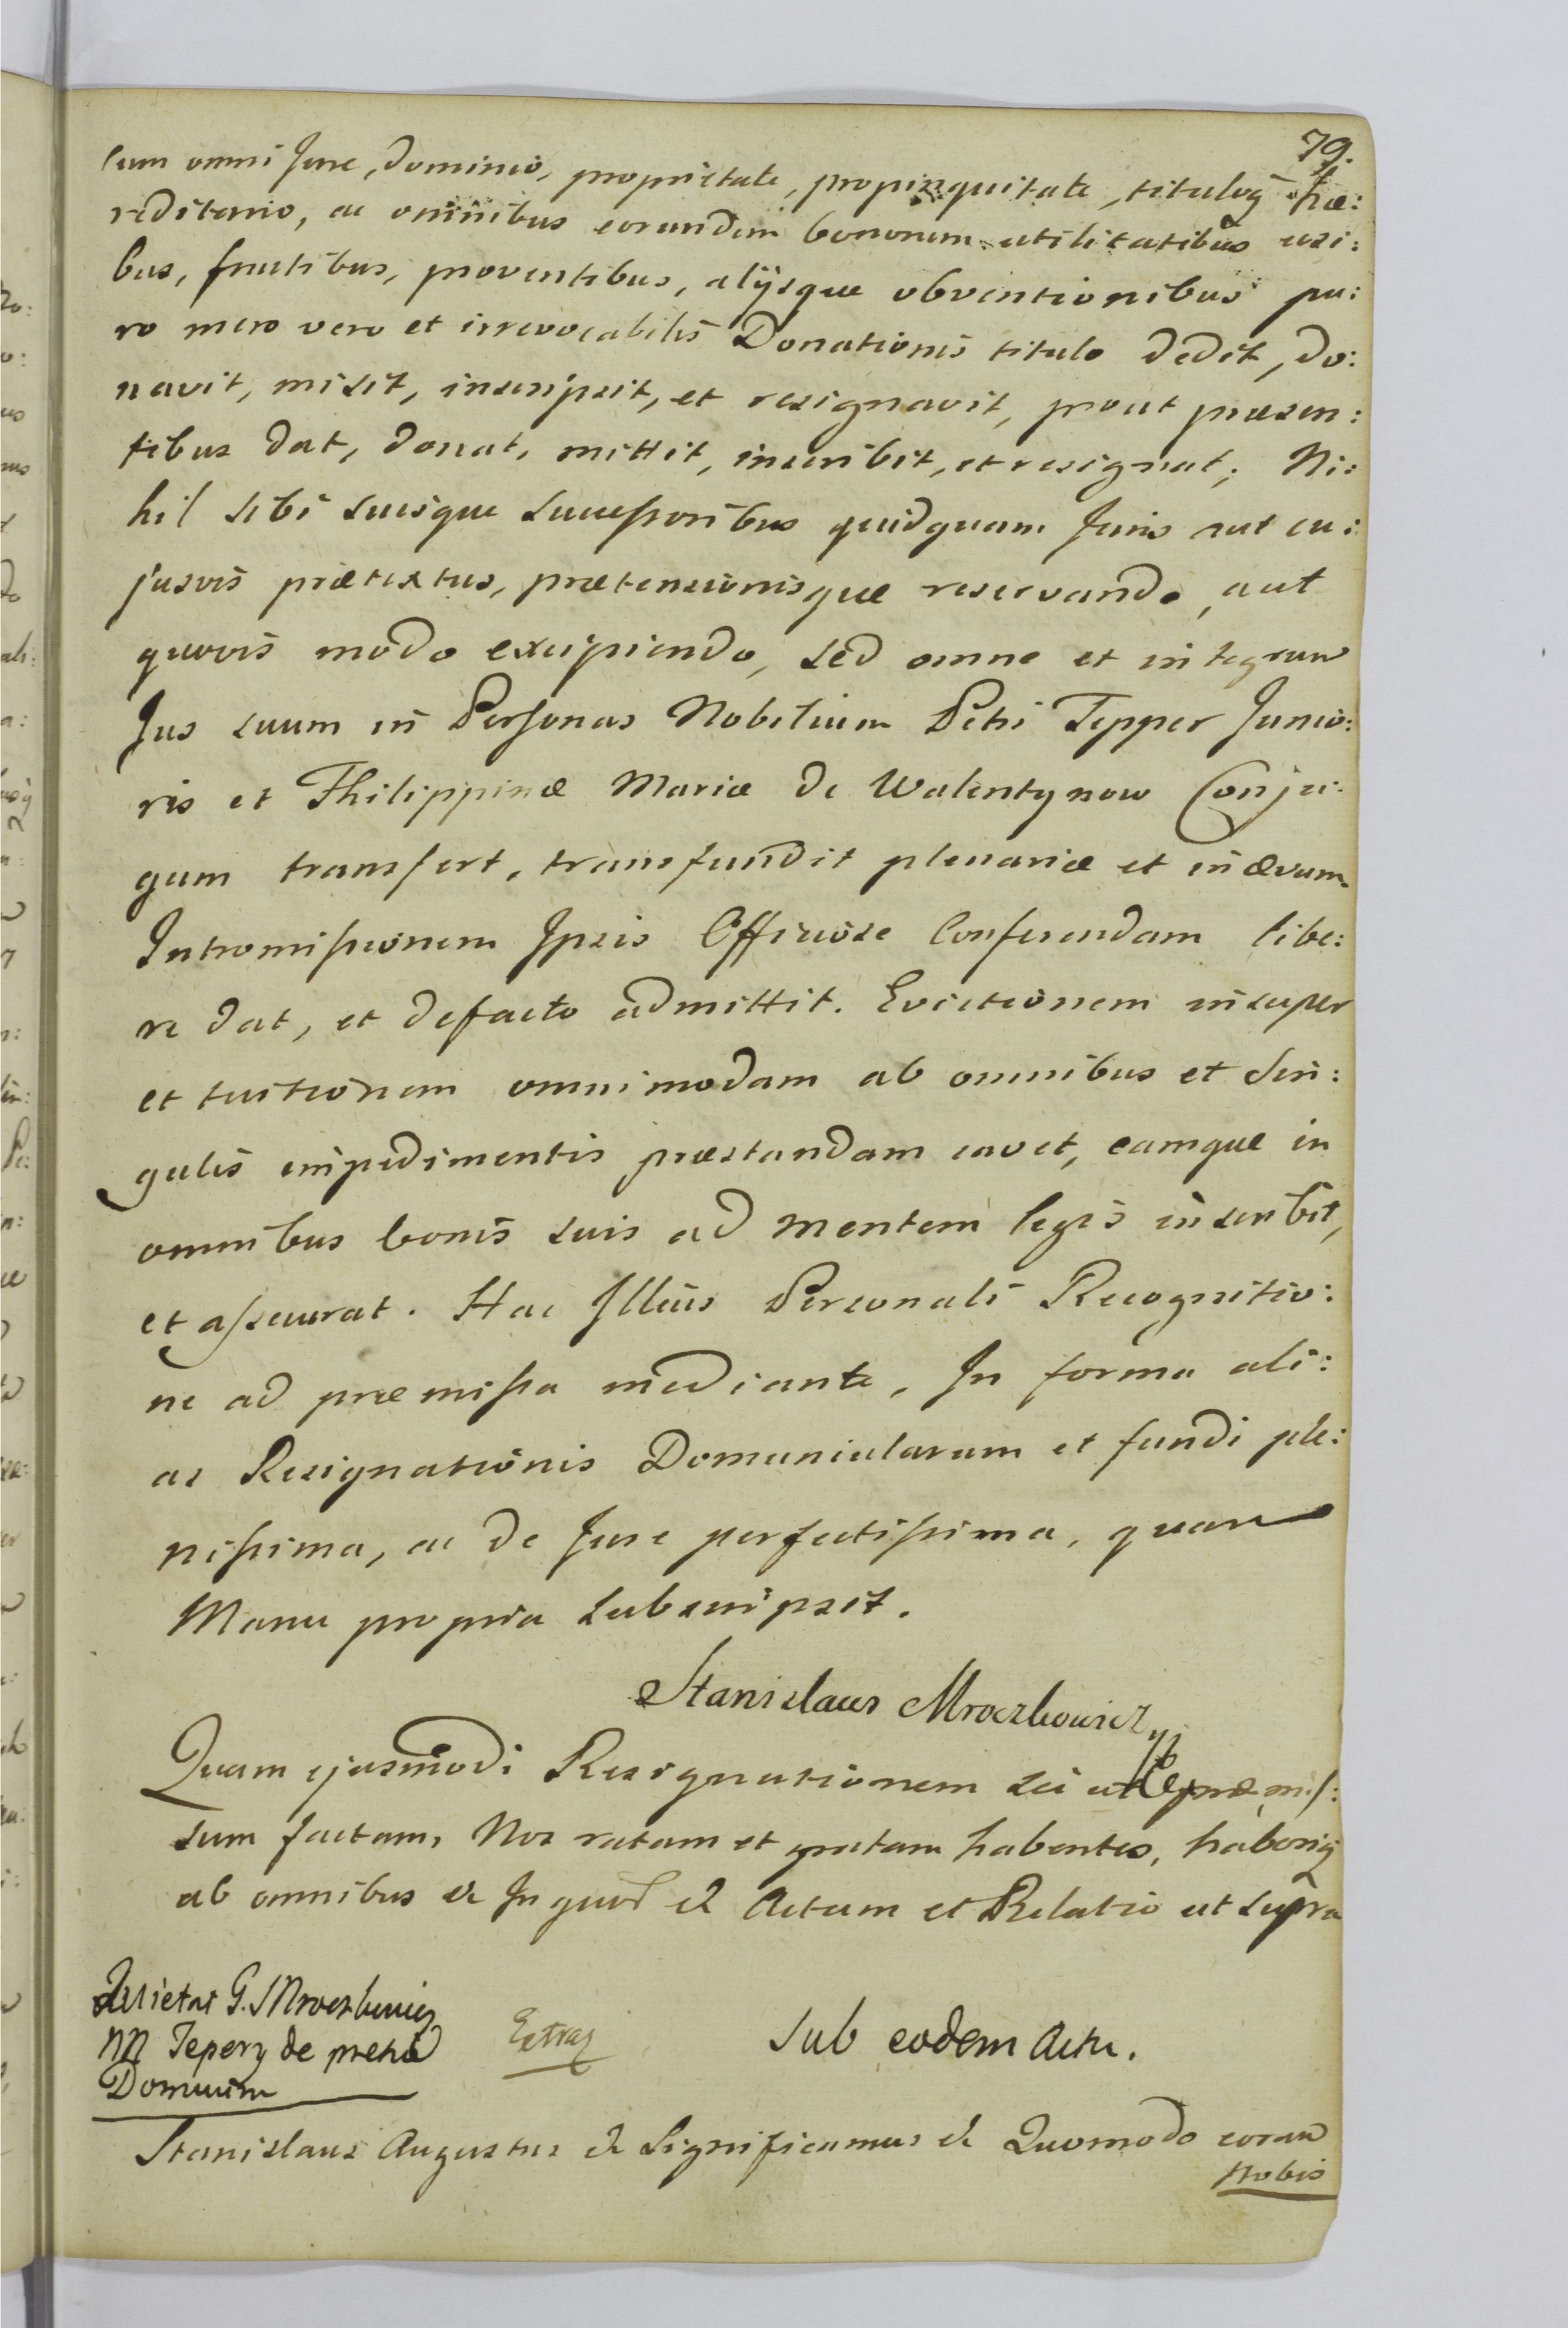 79.
cum omni Jure, dominio, proprietate, propinquitate, tituloq hæ:
reditario, ac omnibus eorundem bonorum utilitatibus usi:
bus, fructibus, proventibus, alijsque obventionibus pu:
ro mero vero et irrevocabilis Donationis titulo dedit, do:
navit, misit, inscripsit, et resignavit, prout præsen:
tibus dat, donat, mittit, inscribit, et resignat; Ni:
hil sibi suisque successoribus quidquam Juris aut cu:
jusvis prætextus, prætensionisque reservando, aut
quovis modo excipiendo, sed omne et integrum
Jus suum in Personas Nobilium Petri Tepper Junio:
ris et Philippinæ Mariæ de Walentynow Conju:
gum transfert, transfundit plenarie et in ævum
Intromissionem Ipsis Officiose Conferendam libe:
re dat, et defacto admittit. Evictionem insuper
et tuitionem omnimodam ab omnibus et sin:
gulis impedimentis præstandam cavet, eamque in
omnibus bonis suis ad mentem legis inscribit,
et assecurat. Hac Illius Personali Recognitio:
ne ad præmissa mediante, In forma ali:
as Resignationis Domuncularum et fundi ple:
nissima, ac de Jure perfectissima, quam
Manu propria subscripsit.
Stanislaus Mroczkowicz
Quam ejusmodi Resignationem sei ut præmis:
sum factam, Nos ratam et gratam habentes, haberiq
ab omnibus &c In quor &c Actum et Relatio ut supra
Quietat G. Mroczkowicz
NN Tepery de pretio
Domuum
Extrad
Sub eodem Actu.
Stanislaus Augustus &c Significamus &c Quomodo coram
Nobis